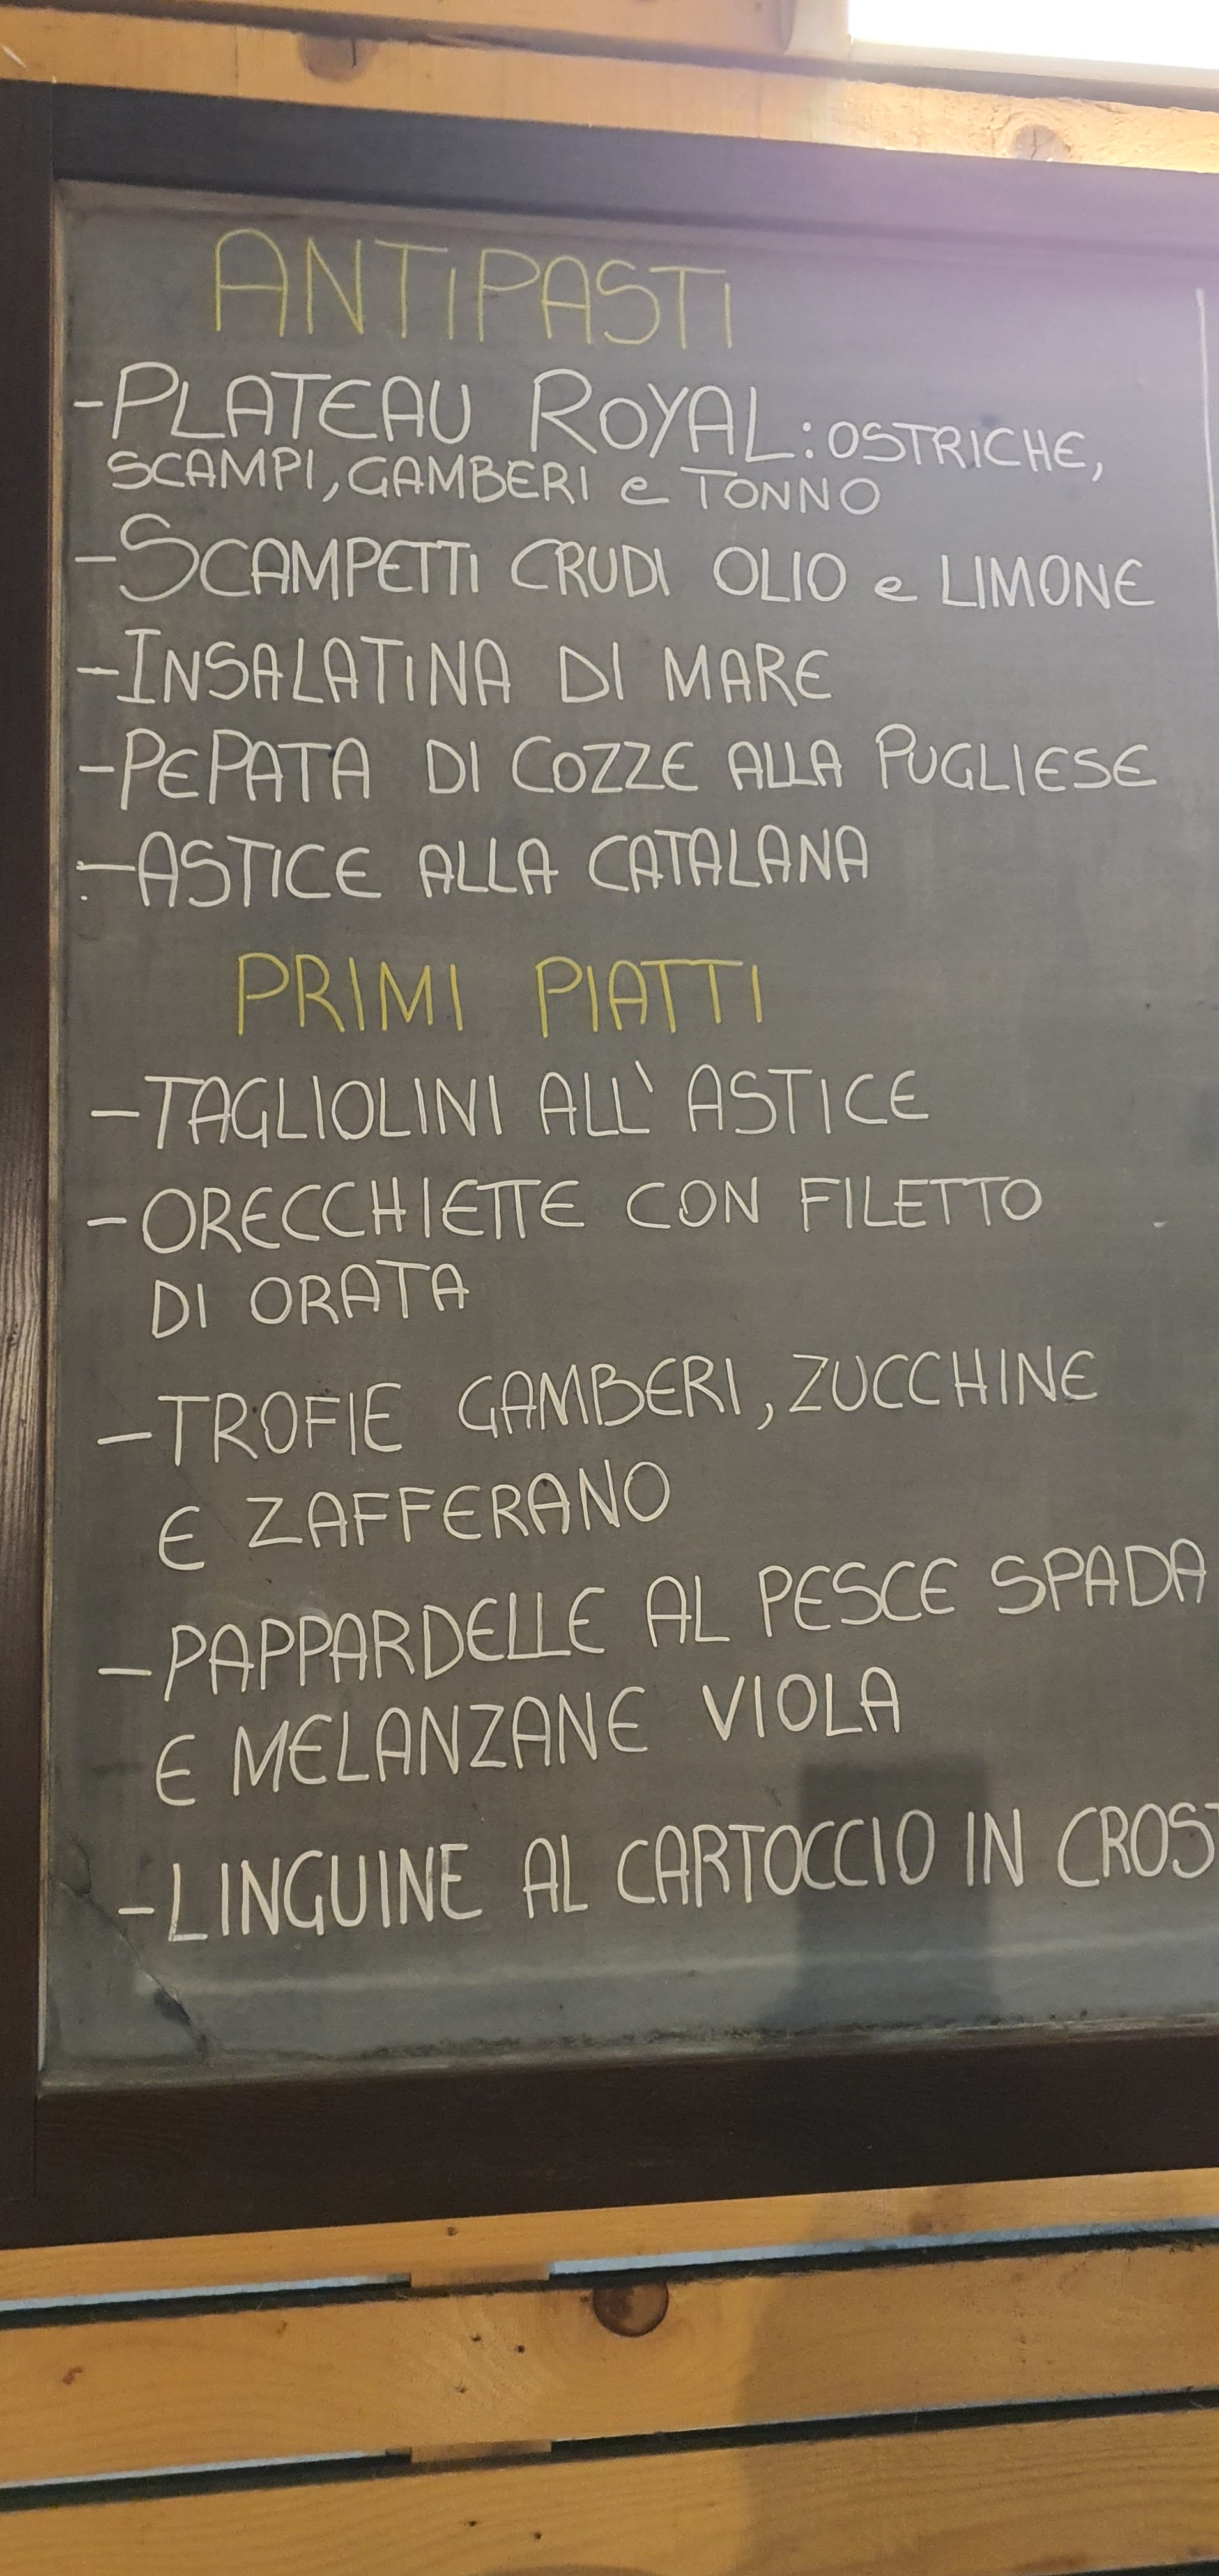 ANTIPASTI
-PLATEAU ROYAL: OSTRICHE,
SCAMPI, GAMBERI e TONNO
-SCAMPETTI CRUDI OLIO e LIMONE
-INSALATINA DI MARE
-PEPATA DI COZZE ALLA PUGLIESE
-ASTICE ALLA CATALANA
PRIMI PIATTI
-TAGLIOLINI ALL'ASTICE
-ORECCHIETTE CON FILETTO
DI ORATA
-TROFIE GAMBERI, ZUCCHINE
E ZAFFERANO
-PAPPARDELLE AL PESCE SPADA
E MELANZANE VIOLA
-LINGUINE AL CARTOCCIO IN